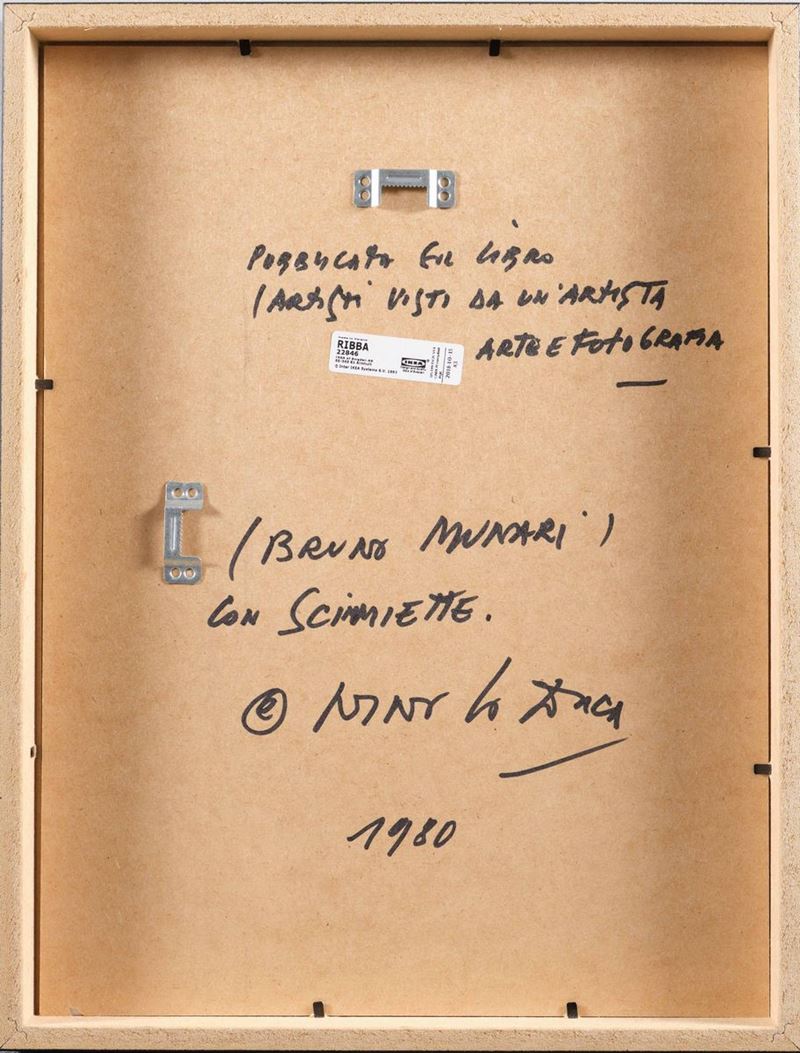 PUBBLICATA SUL LIBRO
(ARTISTI VISTI DA UN'ARTISTA
ARTE E FOTOGRAFIA
RIBBA
22846
© Inter IKEA Systems B.V. 1993
IKEA
(BRUNO MUNARI)
CON SCIMMIETTE.
© NINO LO DUCA
1980